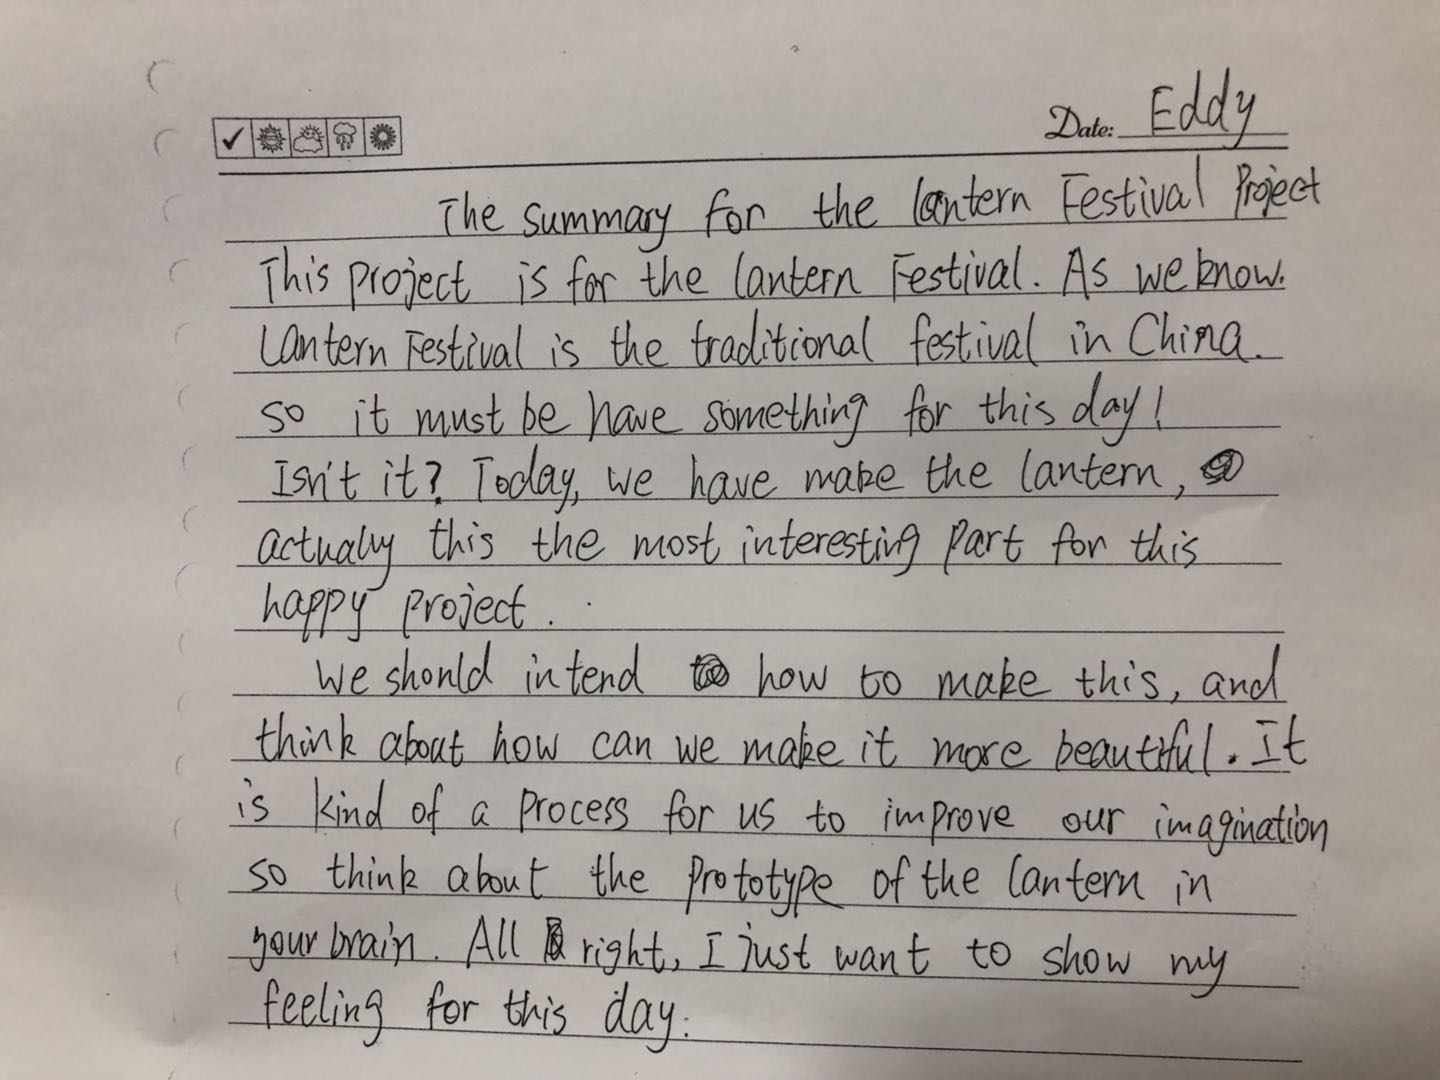 Date: Eddy
The summary for the lantern Festival Project
This project is for the lantern Festival. As we know.
Lantern Festival is the traditional festival in China.
so it must be have something for this day!
Isn't it? Today, we have make the lantern,
actually this the most interesting part for this
happy project.
We should intend how to make this, and
think about how can we make it more beautiful. It
is kind of a process for us to improve our imagination
so think about the prototype of the lantern in
your brain. All right, I just want to show my
feeling for this day.